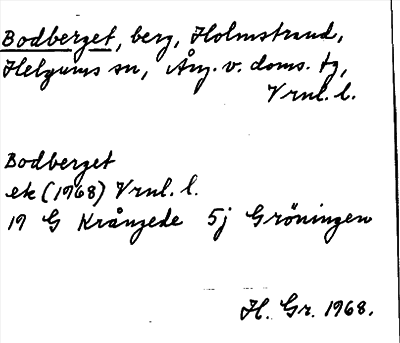 Bodberget, berg, Holmstrand,
Helgums sn, Ång. v. doms. tg,
Vrnl. l.
Bodberget
ek (1968) Vrnl. l.
19 G Krångede 5j Gröningen
H. Gr. 1968.